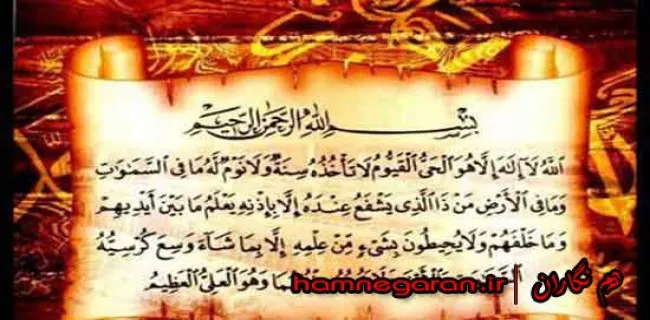 بِسْمِ اللهِ الرَّحْمٰنِ الرَّحِيمِ
اللَّهُ لَا إِلَٰهَ إِلَّا هُوَ الْحَيُّ الْقَيُّومُ لَا تَأْخُذُهُ سِنَةٌ وَلَا نَوْمٌ لَّهُ مَا فِي السَّمَٰوَٰتِ
وَمَا فِي الْأَرْضِ مَن ذَا الَّذِي يَشْفَعُ عِندَهُ إِلَّا بِإِذْنِهِ يَعْلَمُ مَا بَيْنَ أَيْدِيهِمْ
وَمَا خَلْفَهُمْ وَلَا يُحِيطُونَ بِشَيْءٍ مِّنْ عِلْمِهِ إِلَّا بِمَا شَاءَ وَسِعَ كُرْسِيُّهُ
وَهُوَ الْعَلِيُّ الْعَظِيمُ
هم نگاران | hamnegaran.ir